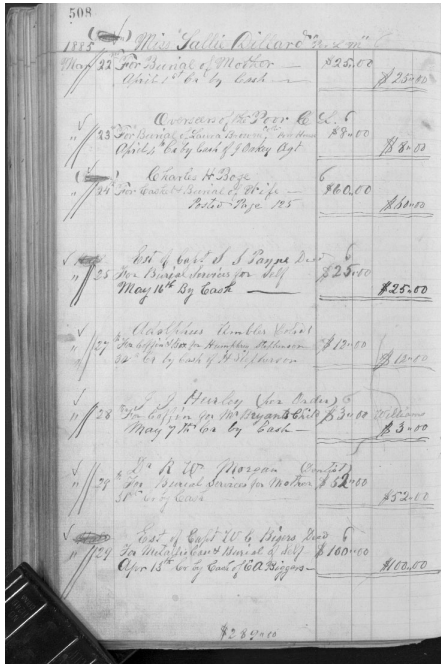 508
1885 Miss Sallie Dillard
Mar 22 For Burial of Mother $25.00
April 1st Cr by Cash $25.00
Overseer of the Poor
" 23 For Burial of Laura $8.00
April 4th Cr by Cash of J Oakey Agt $8.00
Charles H Boze 6
" 24 For Casket & Burial of Wife $60.00
Posted Page 125 $60.00
Est of Capt S J Payne Decd 6
" 25 For Burial Services for Self $25.00
May 16th By Cash $25.00
Adolphus Umbles
" 27 For Coffin & Box for $12.00
Cr by Cash of H $12.00
(for Order) 6
" 28 For Coffin for Mr Bryants Child $3.00 Williams
May 7th Cr by Cash $3.00
Dr R W Morgan (Dentist)
" 29 For Burial Services for Mother $52.00
Cr by Cash $52.00
Est of Capt W C Bigers Decd 6
" 29 For Metallic Case & Burial of Self $100.00
Apr 15th Cr by Cash of C A Biggers $100.00
$289.00